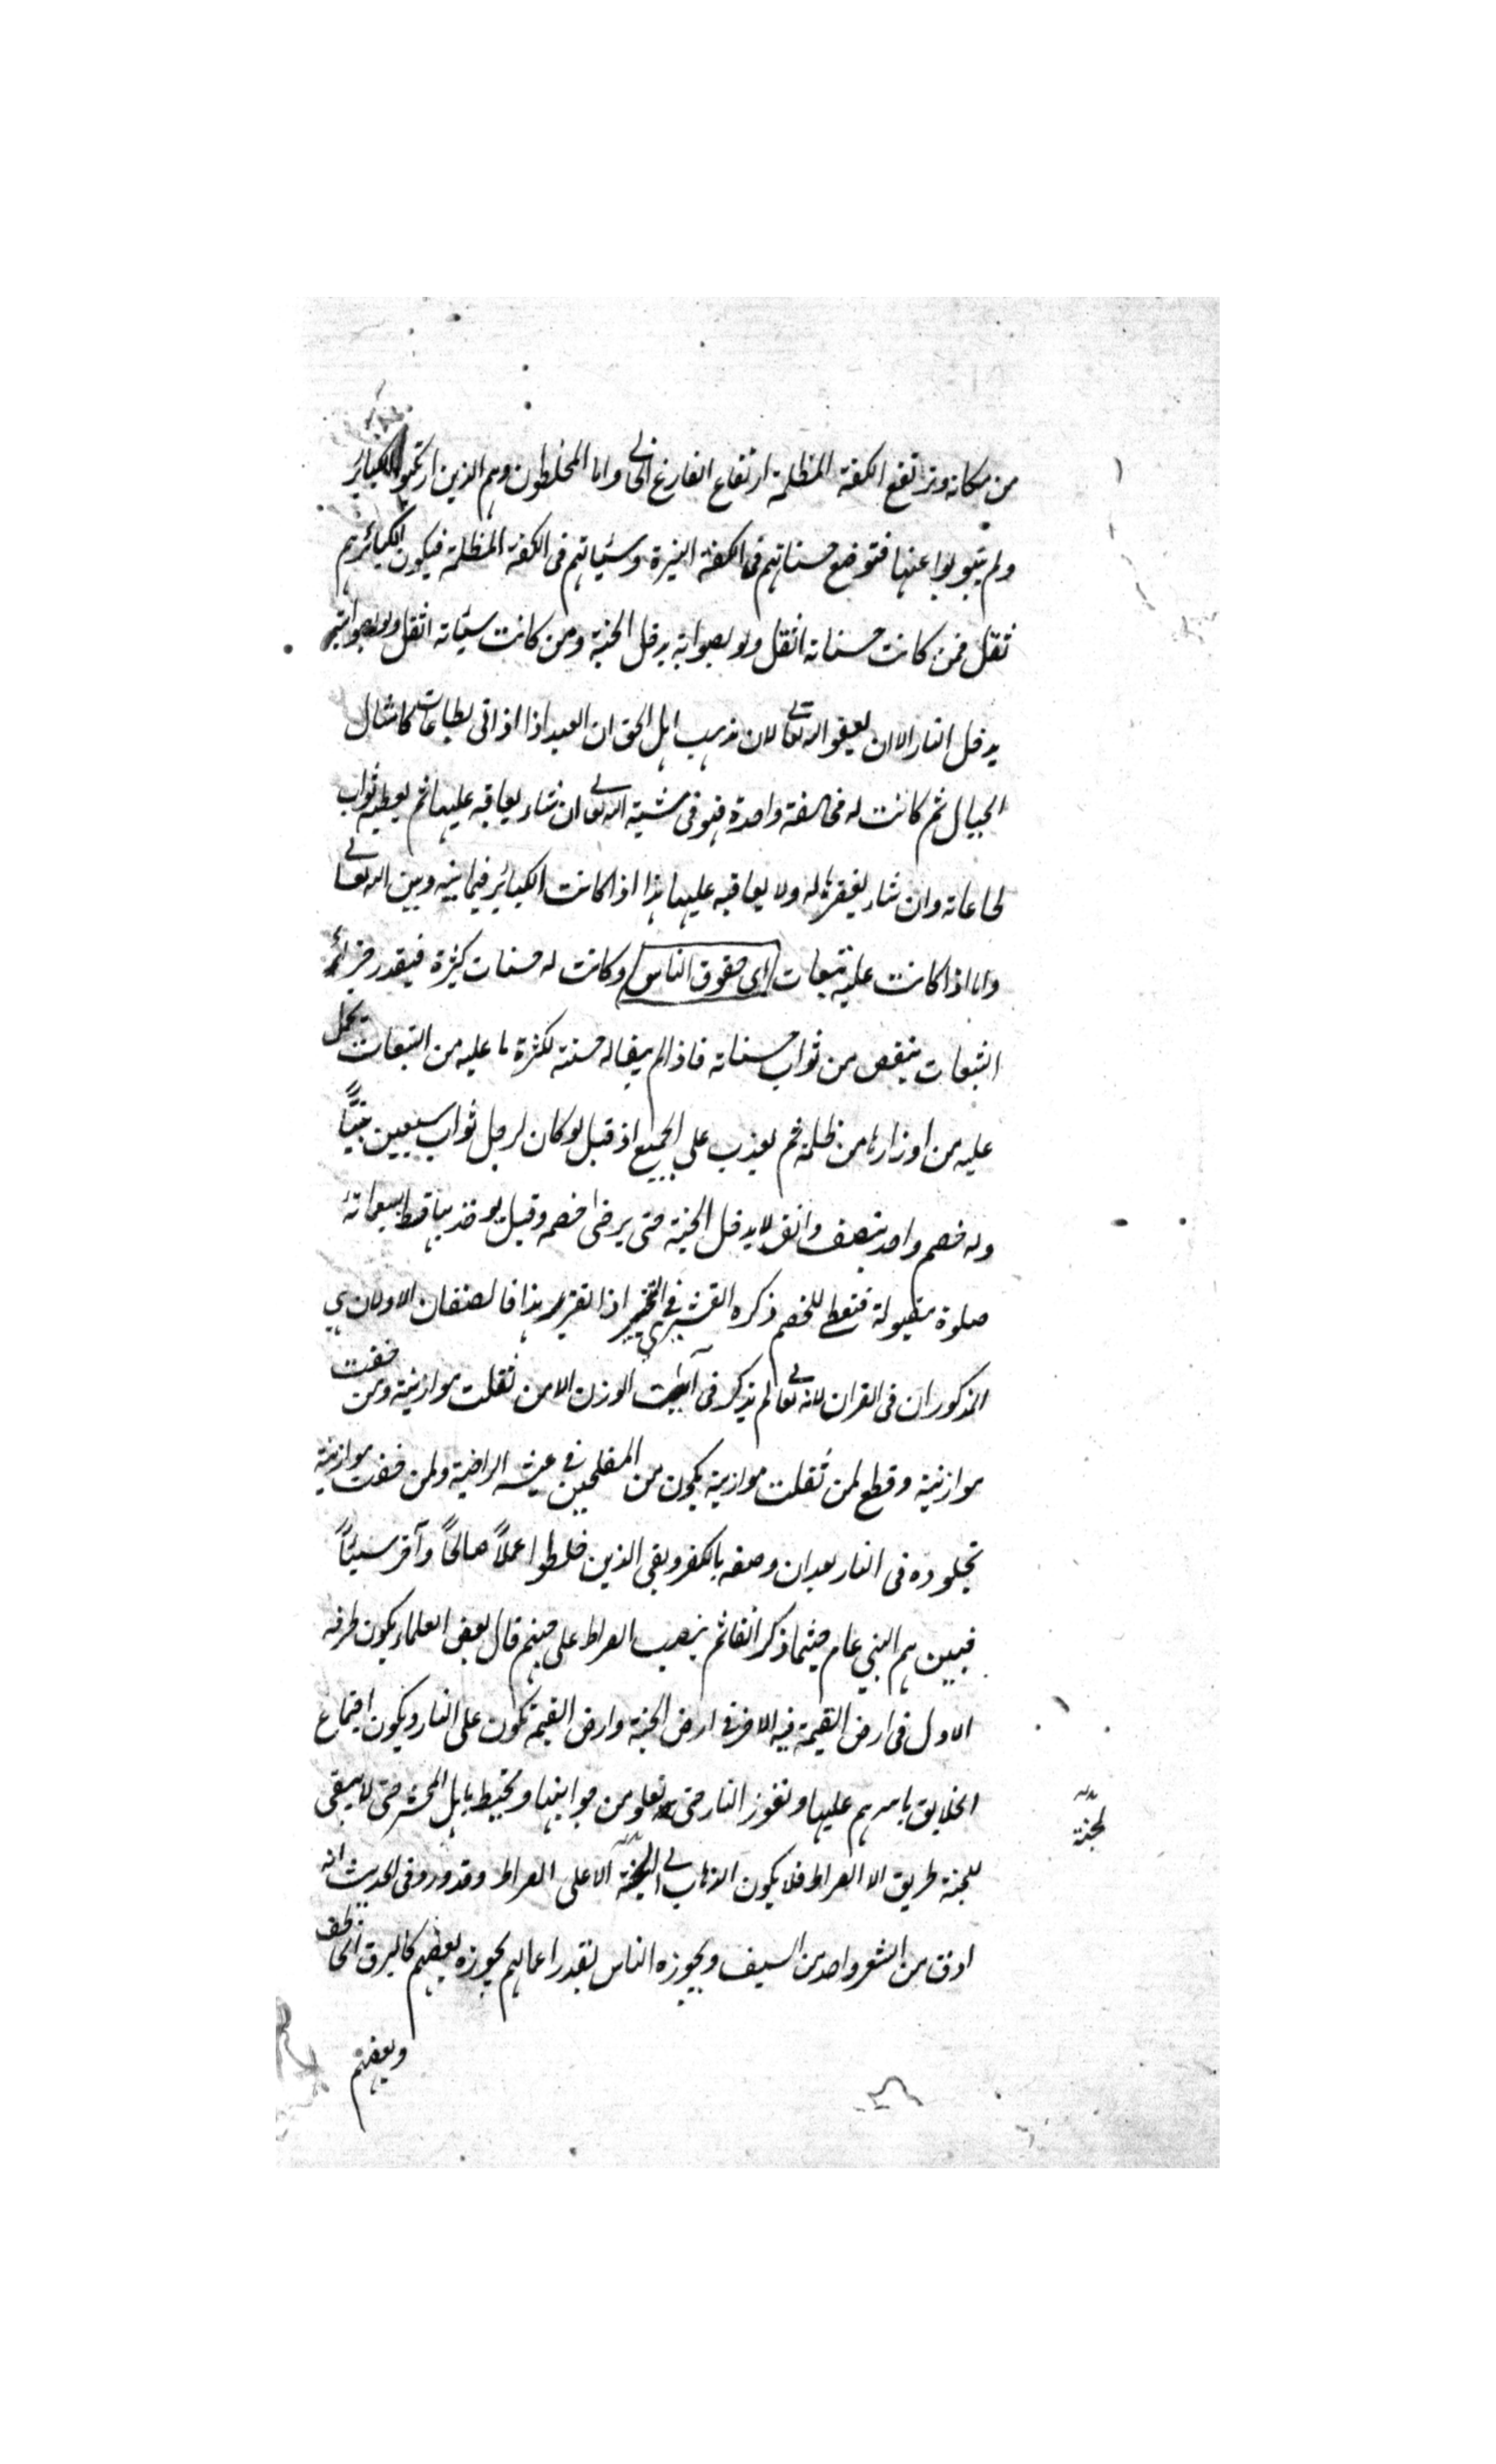 من مكانه وترتفع الكفة المظلمة ارتفاع الفارغ الخالي واما المخلطون وهم الذين ارتكبوا الكبائر
ولم يتوبوا عنها فتوضع حسناتهم فى الكفة النيرة وسيئاتهم فى الكفة المظلمة فيكون لكبائرهم
ثقل فمن كانت حسناته اثقل ولو بصوابة يدخل الجنة ومن كانت سيئاته اثقل ولو بصوابة
يدخل النار الا ان يعفو الله تعالى لان مذهب اهل الحق ان العبد اذا اتى بطاعات كامثال
الجبال ثم كانت له مخالفة واحدة فهو فى مشية الله تعالى ان شاء يعاقبه عليها ثم يعطيه ثواب
طاعاته وان شاء يغفرها له ولا يعاقبه عليها هذا اذا كانت الكبائر فيما بينه وبين الله تعالى
واما اذا كانت عليه تبعات اى حقوق الناس وكانت له حسنات كثيرة فبقدر جزاء
التبعات ينقص من ثواب حسناته فاذا لم يبق له حسنة لكثرة ما عليه من التبعات يحمل
عليه من اوزارها من ظلمه ثم يعذب على الجميع اذ قيل لو كان لرجل ثواب سبعين نبيًا
وله خصم واحد بنصف دانق لا يدخل الجنة حتى يرضى خصمه وقيل يوخذ بدانق سبعمائة
صلوة مقبولة فتعطى للخصم ذكره القشيرى فى التحبير اذا تقرر هذا فالصنفان الاولان هى
المذكوران فى القران لانه تعالى لم يذكر فى آيات الوزن الا من ثقلت موازينه ومن خفت
موازينه وقطع لمن ثقلت موازينه يكون من المفلحين فى عيشه الراضية ولمن خفت موازينه
بخلوده فى النار بعد ان وصفه بالكفر وبقى الذين خلطوا عملاً صالحًا وآخر سيئًا
فبين هم النبي عام حيثما ذكر انفا ثم ينصب الصراط على جهنم قال بعض العلماء يكون طرفه
الاول فى ارض القيمة فيه الاخر فى ارض الجنة وارض القيمة تكون على النار ويكون اجتماع
الخلايق باسرهم عليها وتفوز النار حتى تعلو من جوانبها وتحيط باهل المحشر حتى لا يبقى
للجنة طريق الا الصراط فلا يكون الذهاب الى الجنة الا على الصراط وقد ورد فى الحديث انه
ادق من الشعر واحد من السيف ويجوزه الناس بقدر اعمالهم يجوزه بعضهم كالبرق الخاطف
وبعضهم
لجنة